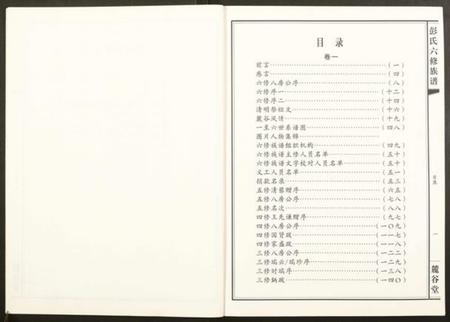 目录
卷一
前言……(一)
卷言……(四)
六修八房公序……(八)
六修序一……(十二)
六修序二……(十四)
清明祭祖文……(十六)
麓谷风情……(十九)
一至六世系谱图……(四八)
图片人物集锦
六修族谱组织机构……(四九)
六修族谱主修人员名单……(五十)
六修族谱文字校对人员名单……(五十)
义工人员名单……(五一)
捐款名录……(五三)
五修清翡赠序……(六五)
五修八房公序……(七八)
五修名次……(八八)
四修王先谦赠序……(九七)
四修八房公序……(一〇九)
四修国贤跋……(一一七)
四修家盛跋……(一一八)
三修八房公序……(一二二)
三修瑞云/瑞珍序……(一二九)
三修时瑞序……(一三八)
三修鹏跋……(一四〇)
彭氏六修族谱
目录
一
麓谷堂